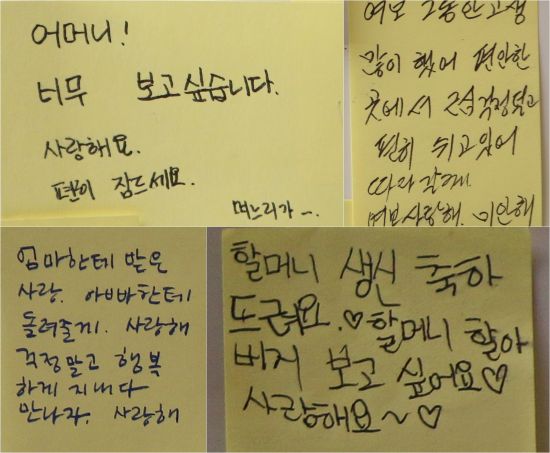 어머니!
너무 보고싶습니다.
사랑해요.
편이 잠드세요.
며느리가~.
여보 그동안 고생
많이 했어 편안한
곳에서 근심걱정말고
편히 쉬고있어
따라갈게.
여보사랑해. 미안해
엄마한테 받은
사랑. 아빠한테
돌려줄게. 사랑해
걱정말고 행복
하게 지내다
만나자. 사랑해
할머니 생신 축하
뜨려요.♡할머니 할아
버지 보고 싶어요♡
사랑해요~♡